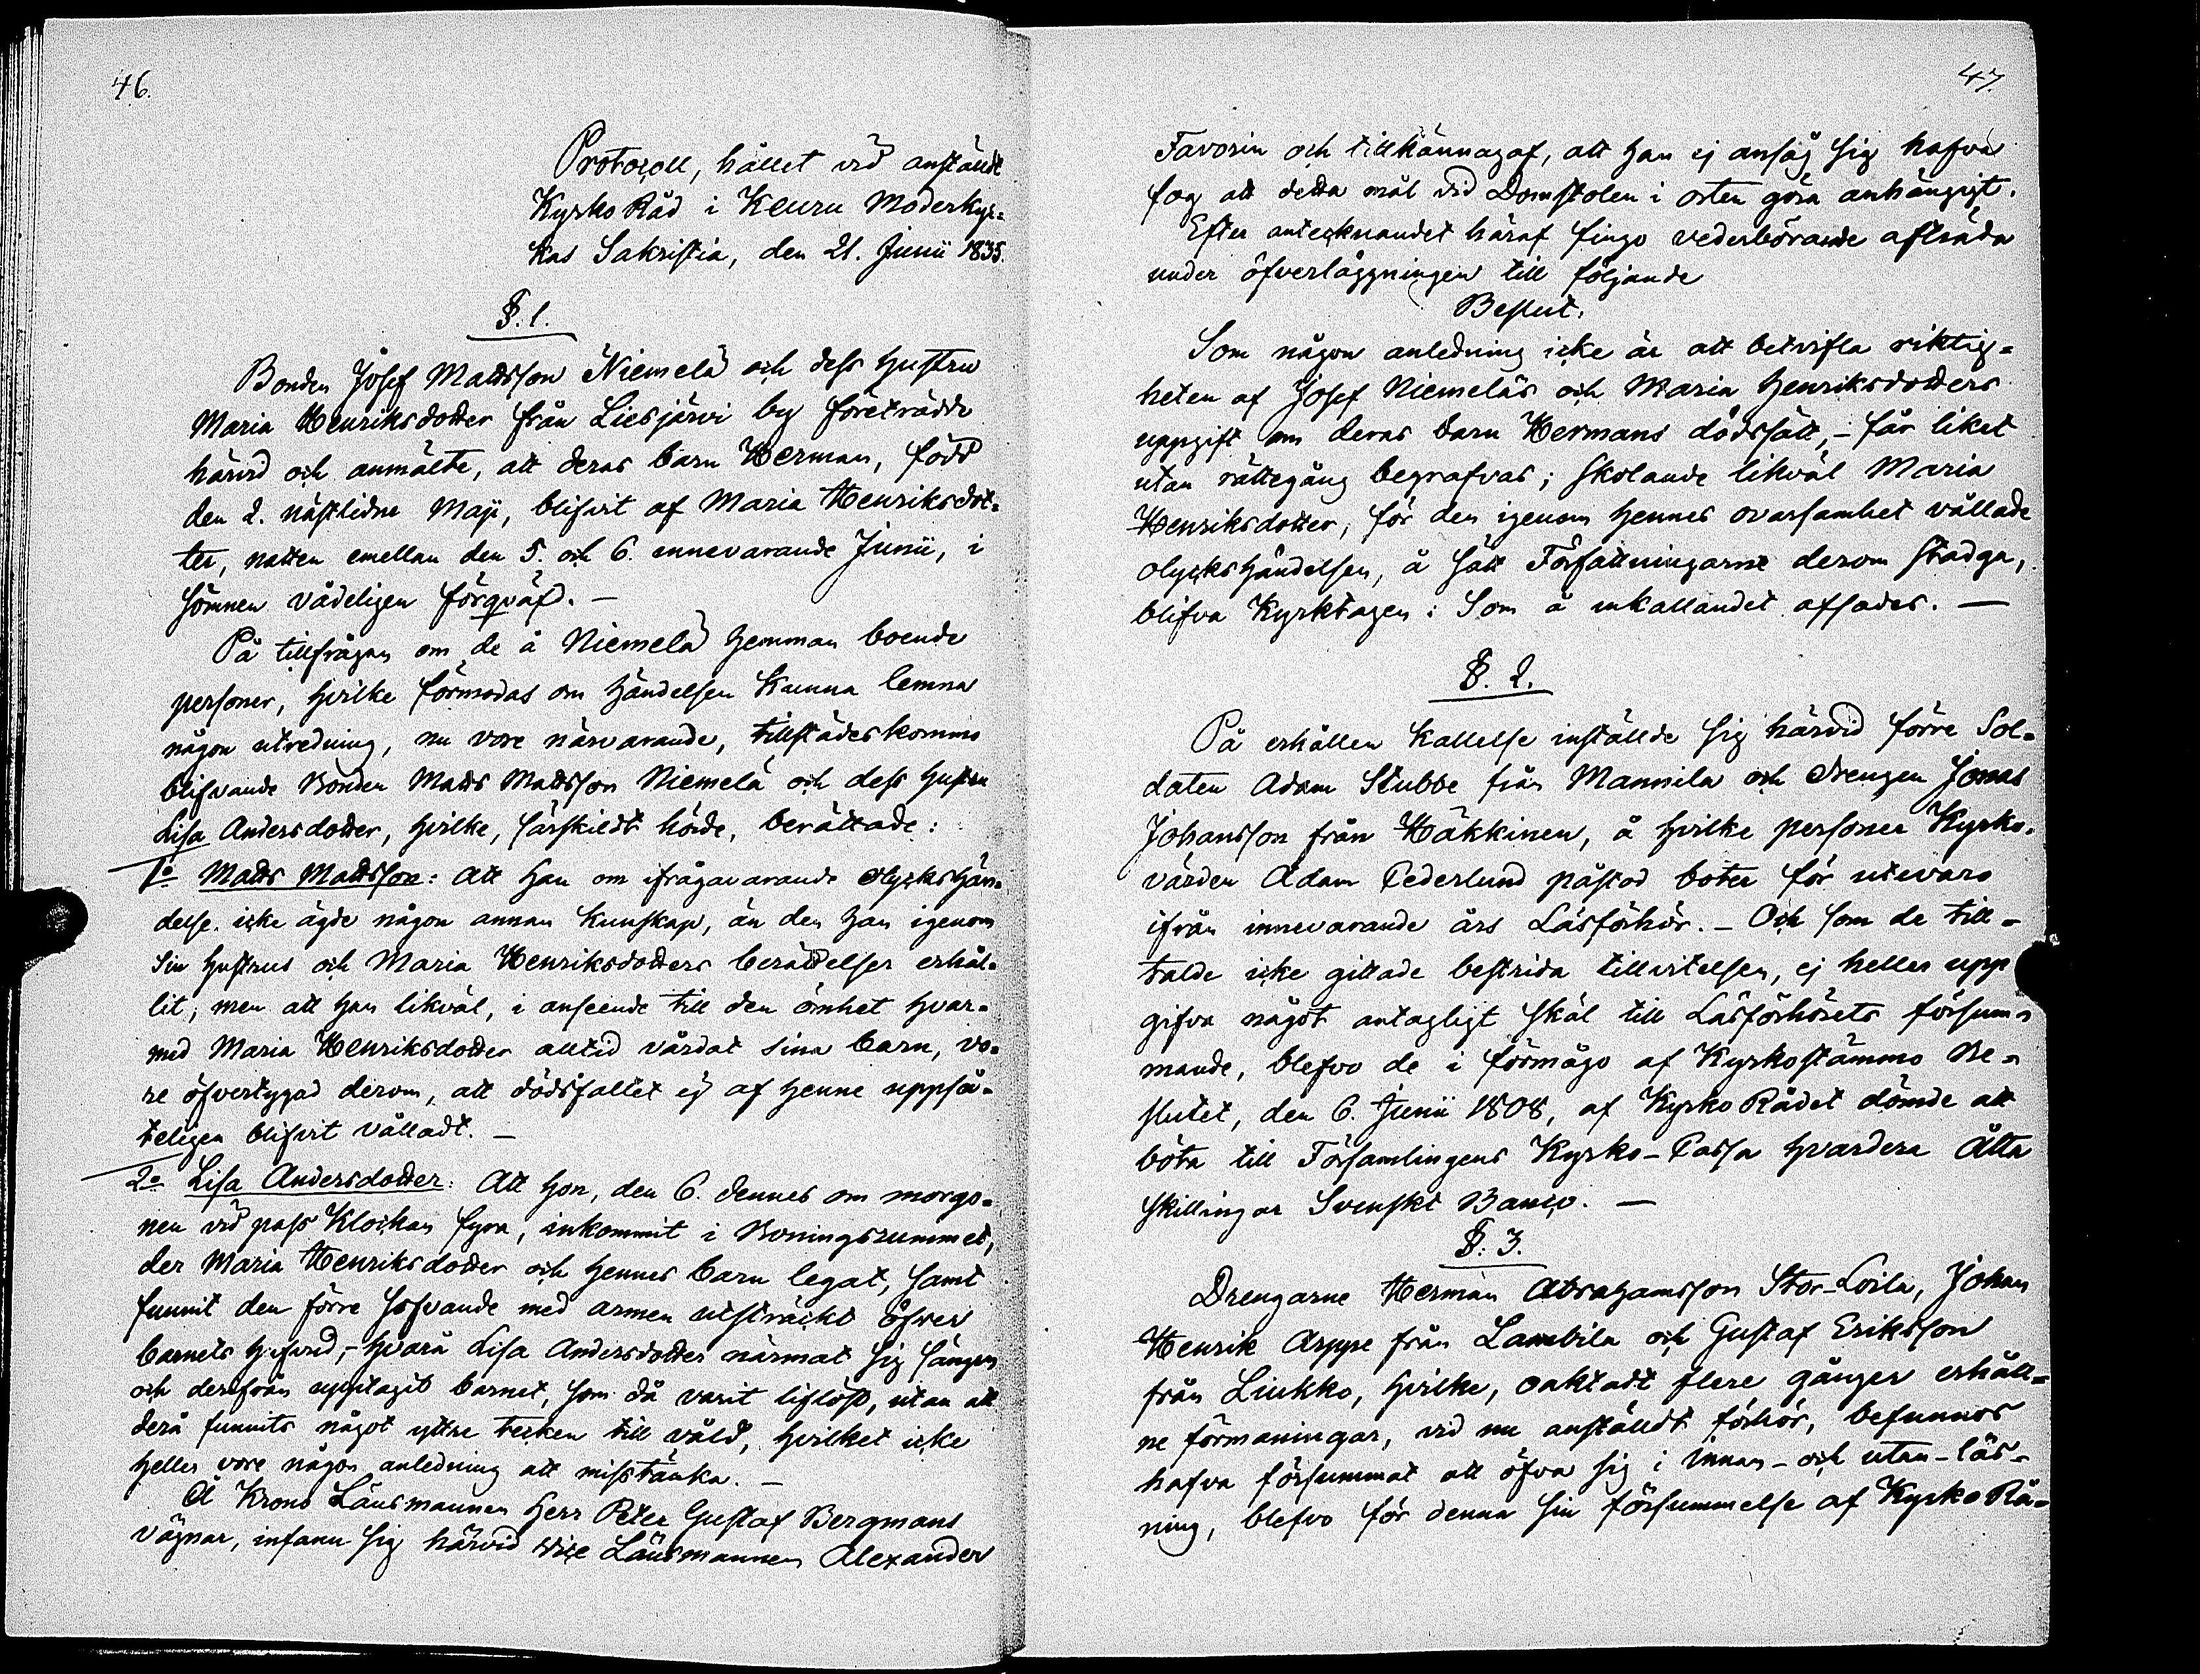 46.
Protocoll, hållet vid anstäldt
Kyrko Råd i Keuru Moderkyr=
kas Sakristia, den 21. Junii 1835.
§. 1.
Bonden Josef Mattsson Niemelä och dess Hustru
Maria Henriksdotter från Liesjärvi by företrädde
härvid och anmälte, att deras barn Herman, född
den 2. nästlidne Maji, blifvit af Maria Henriksdot=
ter, natten emellan den 5. och 6. innevarande Junii, i
sömnen vådeligen förqväf. —
På tillfrågan om de å Niemelä Hemman boende
personer, hvilke förmodas om händelsen kunna lemna
någon utredning, nu vore närvarande, tillstädeskomme
blifvande Bonden Matts Mattsson Niemelä och dess Hustru
Lisa Andersdotter, hvilke, särskildt hörde, berättade:
1o Matts Mattsson: Att han om ifrågavarande olyckshän=
delse icke ägde någon annan kunskap, än den han igenom
sin Hustrus och Maria Henriksdotters berättelser erhål=
lit; men att han likväl, i anseende till den ömhet hvar=
med Maria Henriksdotter alltid vårdat sina barn, vo=
re öfvertygad derom, att dödsfallet ej af henne uppså=
teligen blifvit vålladt. —
2o Lisa Andersdotter: Att hon, den 6. dennes om morgo=
nen vid pass klockan fyra, inkommit i Boningsrummet,
der Maria Henriksdotter och hennes barn legat, samt
funnit den förre sofvande med armen utsträckt öfver
barnets hufvud, - hvarå Lisa Andersdotter närmat sig sängen
och derifrån upptagit barnet, som då varit liflöst, utan att
derå funnits något yttre tecken till våld, hvilket icke
heller vore någon anledning att misstänka. —
Å Krono Länsmannen Herr Peter Gustaf Bergmans
vägnar, infann sig härvid vice Länsmannen Alexander
47.
Favorin och tillkännagaf, att han ej ansåg sig hafva
fog att detta mål vid Domstolen i orten göra anhängigt.
Efter antecknandet häraf fingo vederbörande afträda
under öfverläggningen till följande
Beslut.
Som någon anledning icke är att betvifla riktig=
heten af Josef Niemeläs och Maria Henriksdotters
uppgift om deras barn Hermans dödssätt, - får liket
utan rättegång begrafvas; skolande likväl Maria
Henriksdotter, för den igenom hennes ovarsamhet vållade
olyckshändelsen, å sätt Författningarne derom stadga,
blifva Kyrktagen: Som å inkallandet afsades. —
§. 2.
På erhållen kallelse inställde sig härvid förre Sol=
daten Adam Stubbe från Mannila och drengen Jonas
Johansson från Häkkinen, å hvilke personer Kyrko=
värden Adam Cederlund påstod böter för utevaro
ifrån innevarande års Läsförhör. — Och som de till=
talde icke gittade bestrida tillvitelsen, ej heller upp
gifva något antagligt skäl till Läsförhörets försum=
mande, blefvo de i förmågo af Kyrkostämmo Be=
slutet, den 6. Junii 1808, af Kyrko Rådet dömde att
böta till Församlingens Kyrko-Cassa hvardera Åtta
skillingar Svenskt Banco. —
§. 3.
Drengarne Herman Abrahamsson Stor-Loila, Johan
Henrik Arppe från Lambila och Gustaf Eriksson
från Liukko, hvilke, oaktadt flere gånger erhåll=
ne förmaningar, vid nu anställdt förhör, befunnos
hafva försummat att öfva sig i innan- och utan-läs=
ning, blefvo för denna sin försummelse af Kyrko Rå=